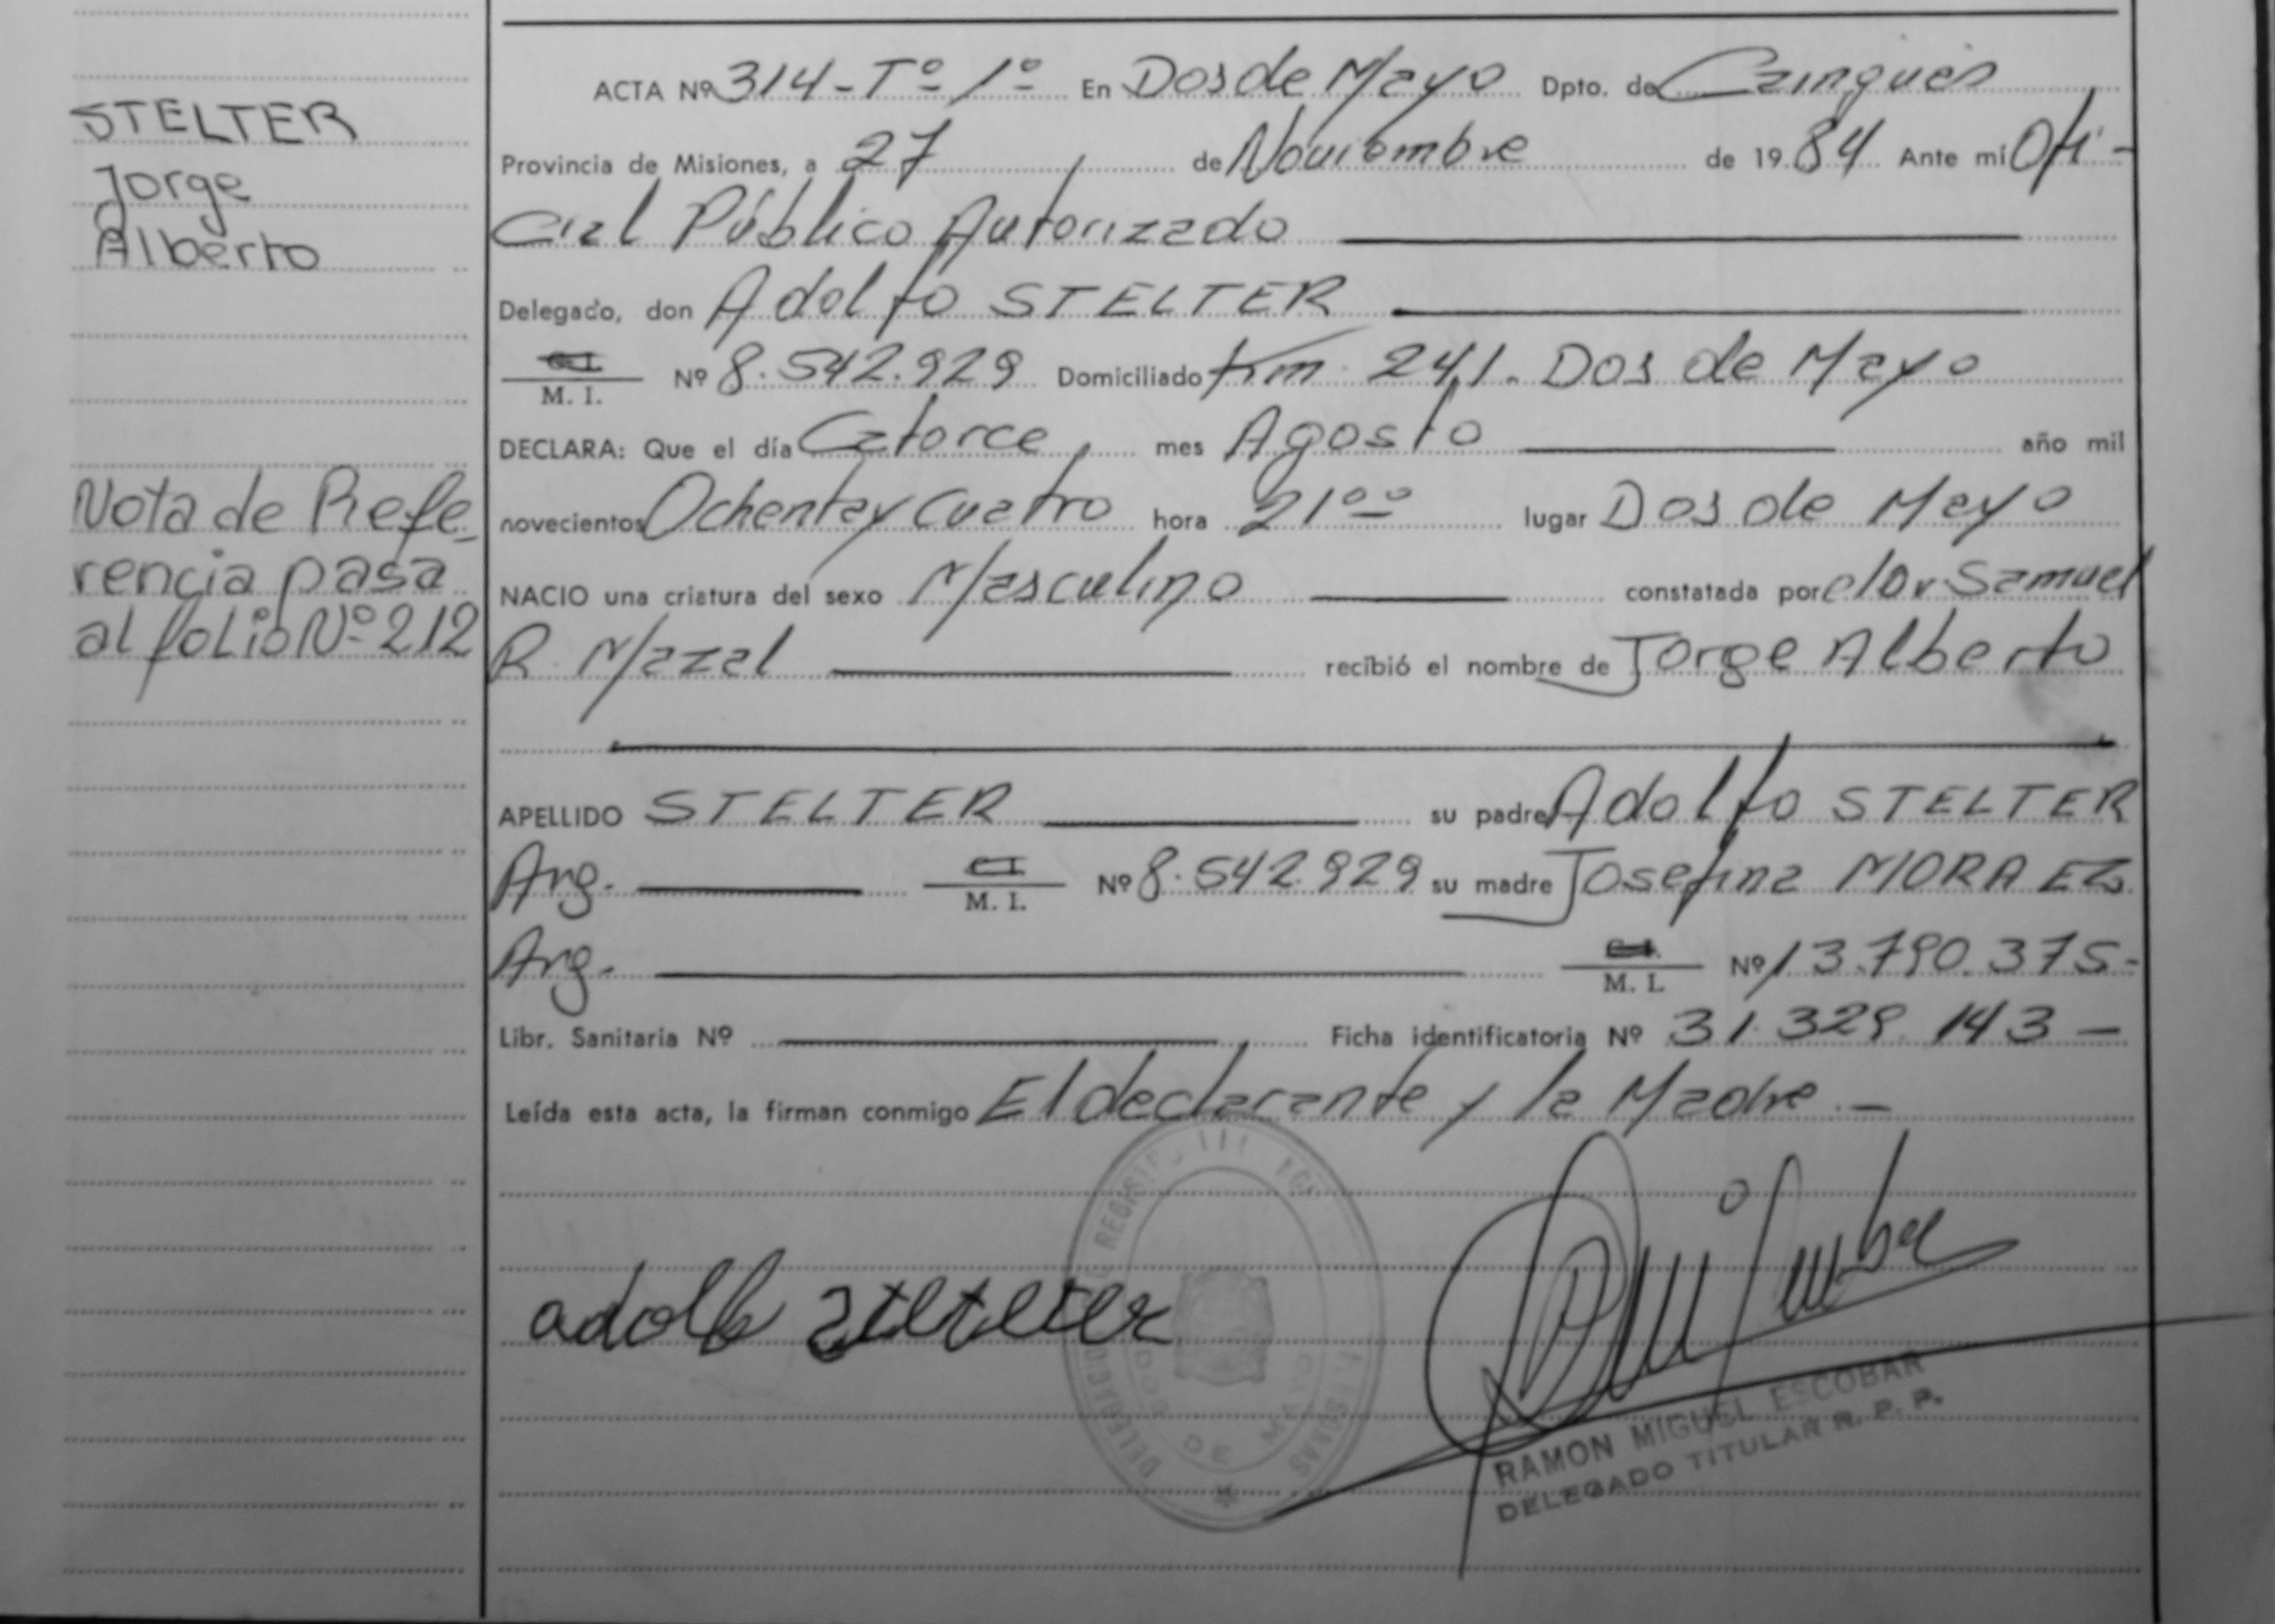 STELTER
Jorge
Alberto
Nota de Refe-
rencia pasa
al folio Nº 212
ACTA Nº 314-Tº-1º En Dos de Mayo Dpto. de Cainguás
Provincia de Misiones, a 27 de Noviembre de 19 84 Ante mí Ofi-
cial Público Autorizado
Delegado, don Adolfo STELTER
C. I.
M. I. Nº 8.542.929 Domiciliado Km 241. Dos de Mayo
DECLARA: Que el día Catorce, mes Agosto año mil
novecientos Ochenta y Cuatro hora 21⁰⁰ lugar Dos de Mayo
NACIO una criatura del sexo Masculino constatada por el Dr. Samuel
R. Mazal recibió el nombre de Jorge Alberto
APELLIDO STELTER su padre Adolfo STELTER
Arg. C I M. I. Nº 8.542.929 su madre Josefina MORAEZ
Arg. C. I. M. I. Nº 13.790.375-
Libr. Sanitaria Nº Ficha identificatoria Nº 31.329.143-
Leída esta acta, la firman conmigo El declarante y la Madre.-
adolfo stelter
RAMON MIGUEL ESCOBAR
DELEGADO TITULAR R. P. P.